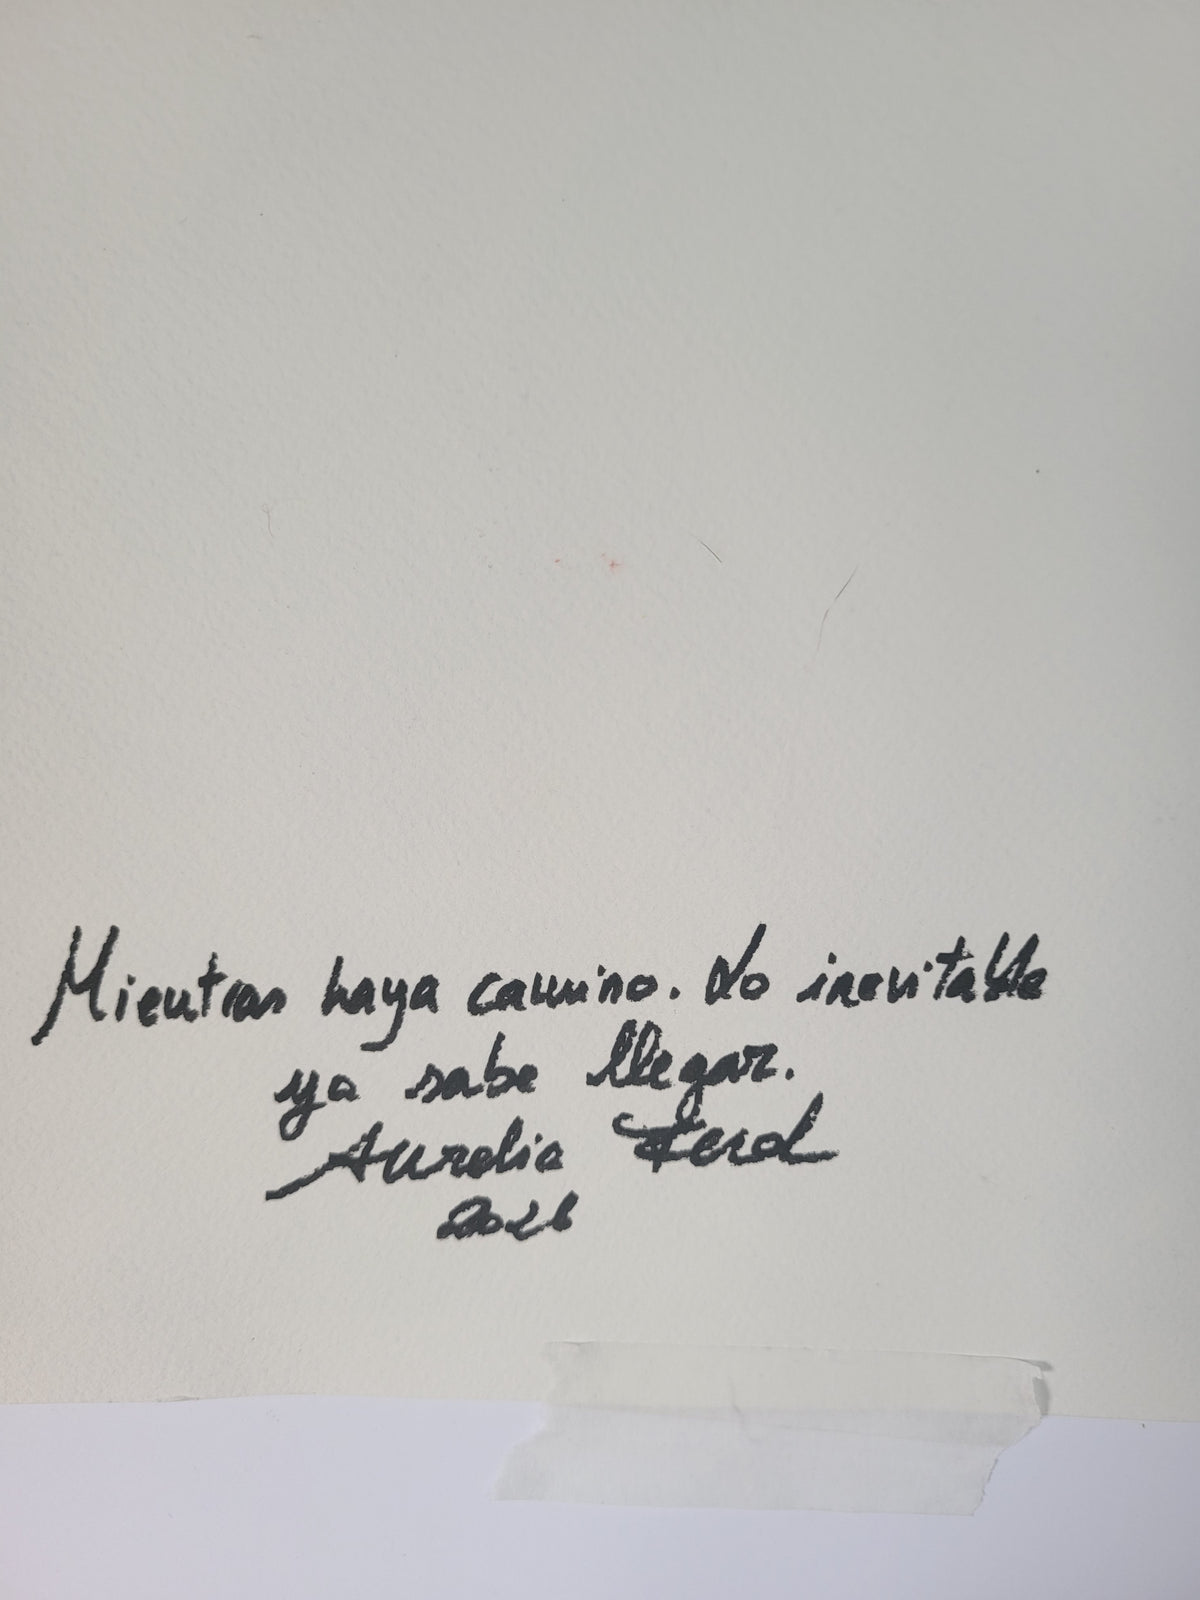 Mientras haya camino. Lo inevitable
ya sabe llegar.
Aurelia Ferd
2026